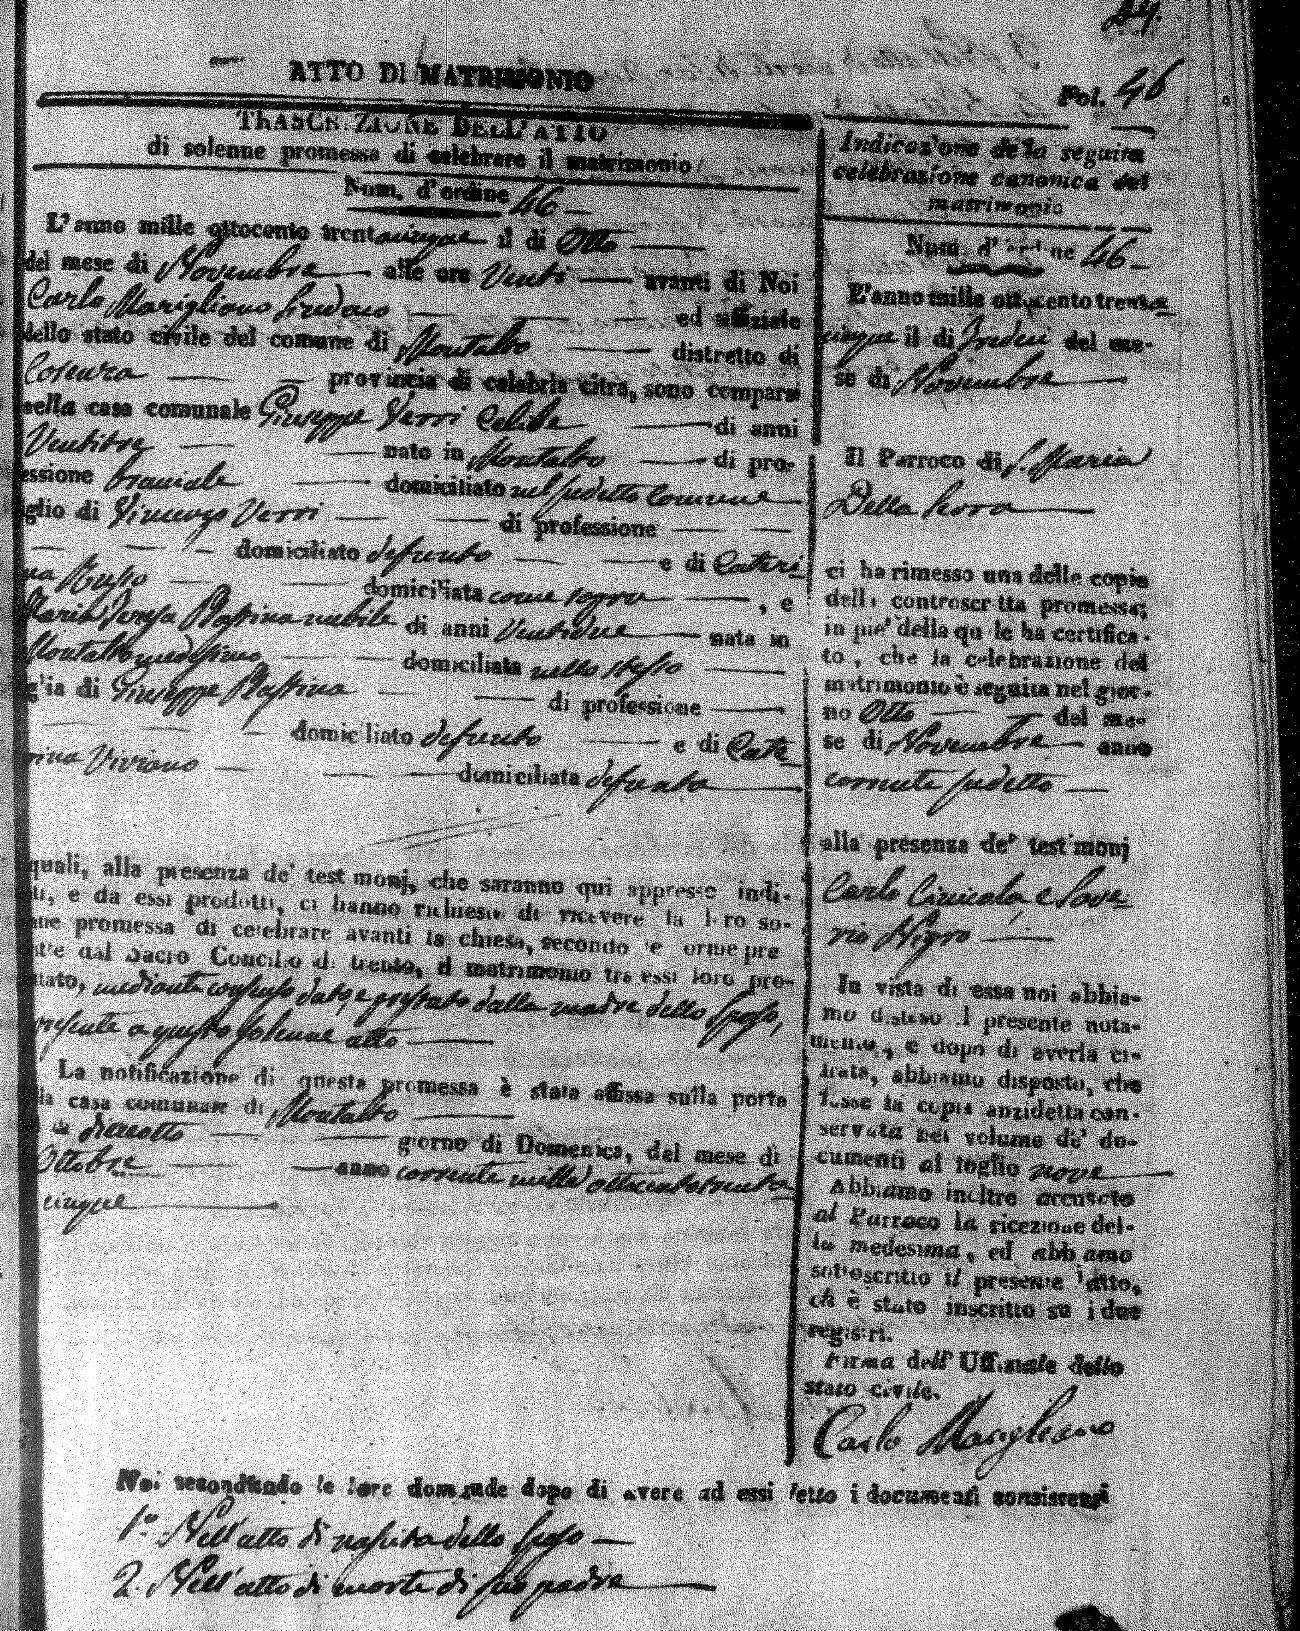 24.
Fol. 46
ATTO DI MATRIMONIO
TRASCRIZIONE DELL' ATTO
di solenne promessa di celebrare il matrimonio
Num. d'ordine 46
L'anno mille ottocento trentacinque il di Otto
del mese di Novembre alle ore Venti avanti di Noi
Carlo Marigliano Sindaco ed uffiziale
dello stato civile del comune di Montalto distretto di
Cosenza provincia di calabria citra, sono comparsi
nella casa comunale Giuseppe Verri Celibe di anni
Ventitre nato in Montalto di pro-
essione bracciale domiciliato nel sudetto Comune
glio di Vincenzo Verri di professione
domiciliato defunto e di Cateri
na Russo domiciliata come sopra , e
Maria Teresa Plastina nubile di anni Ventidue nata in
Montalto medesimo domiciliata nello stesso
glia di Giuseppe Plastina di professione
domiciliato defunto e di Cate
rina Viviano domiciliata defunta
quali, alla presenza de' testimonj, che saranno qui appresso indi-
ti, e da essi prodotti, ci hanno richiesto di ricevere la loro so-
nne promessa di celebrare avanti la chiesa, secondo le forme pre
tte dal Sacro Concilio di trento, il matrimonio tra essi loro pro-
ttato, mediante consenso dato, e prestato dalla madre dello Sposo,
presente a questo solenne atto
La notificazione di questa promessa è stata affissa sulla porta
lla casa comunale di Montalto
dieciotto giorno di Domenica, del mese di
Ottobre anno corrente mille ottocentotrenta
cinque
Indicazione della seguita
celebrazione canonica del
matrimonio
Num. d'ordine 46
L'anno mille ottocento trenta
cinque il di Tredeci del me-
se di Novembre
Il Parroco di S. Maria
Della Rosa
ci ha rimesso una delle copie
della controscritta promessa;
in pie' della quale ha certifica-
to, che la celebrazione del
matrimonio è seguita nel gior-
no Otto del me-
se di Novembre anno
corrente sudetto
alla presenza de' testimonj
Carlo e Save
rio Nigro
In vista di essa noi abbia-
mo disteso il presente nota-
mento, e dopo di averla ci-
frata, abbiamo disposto, che
fusse la copia anzidetta con-
servata nel volume de' do-
cumenti al foglio nove
Abbiamo inoltre accusato
al Parroco la ricezione del-
la medesima, ed abbiamo
sottoscritto il presente atto,
ch'è stato inscritto su i due
registri.
Firma dell' Uffiziale dello
stato civile.
Carlo Marigliano
Noi secondando le loro domande dopo di avere ad essi letto i documenti consistenti
1.º Nell'atto di nascita dello Sposo
2. Nell'atto di morte di suo padre